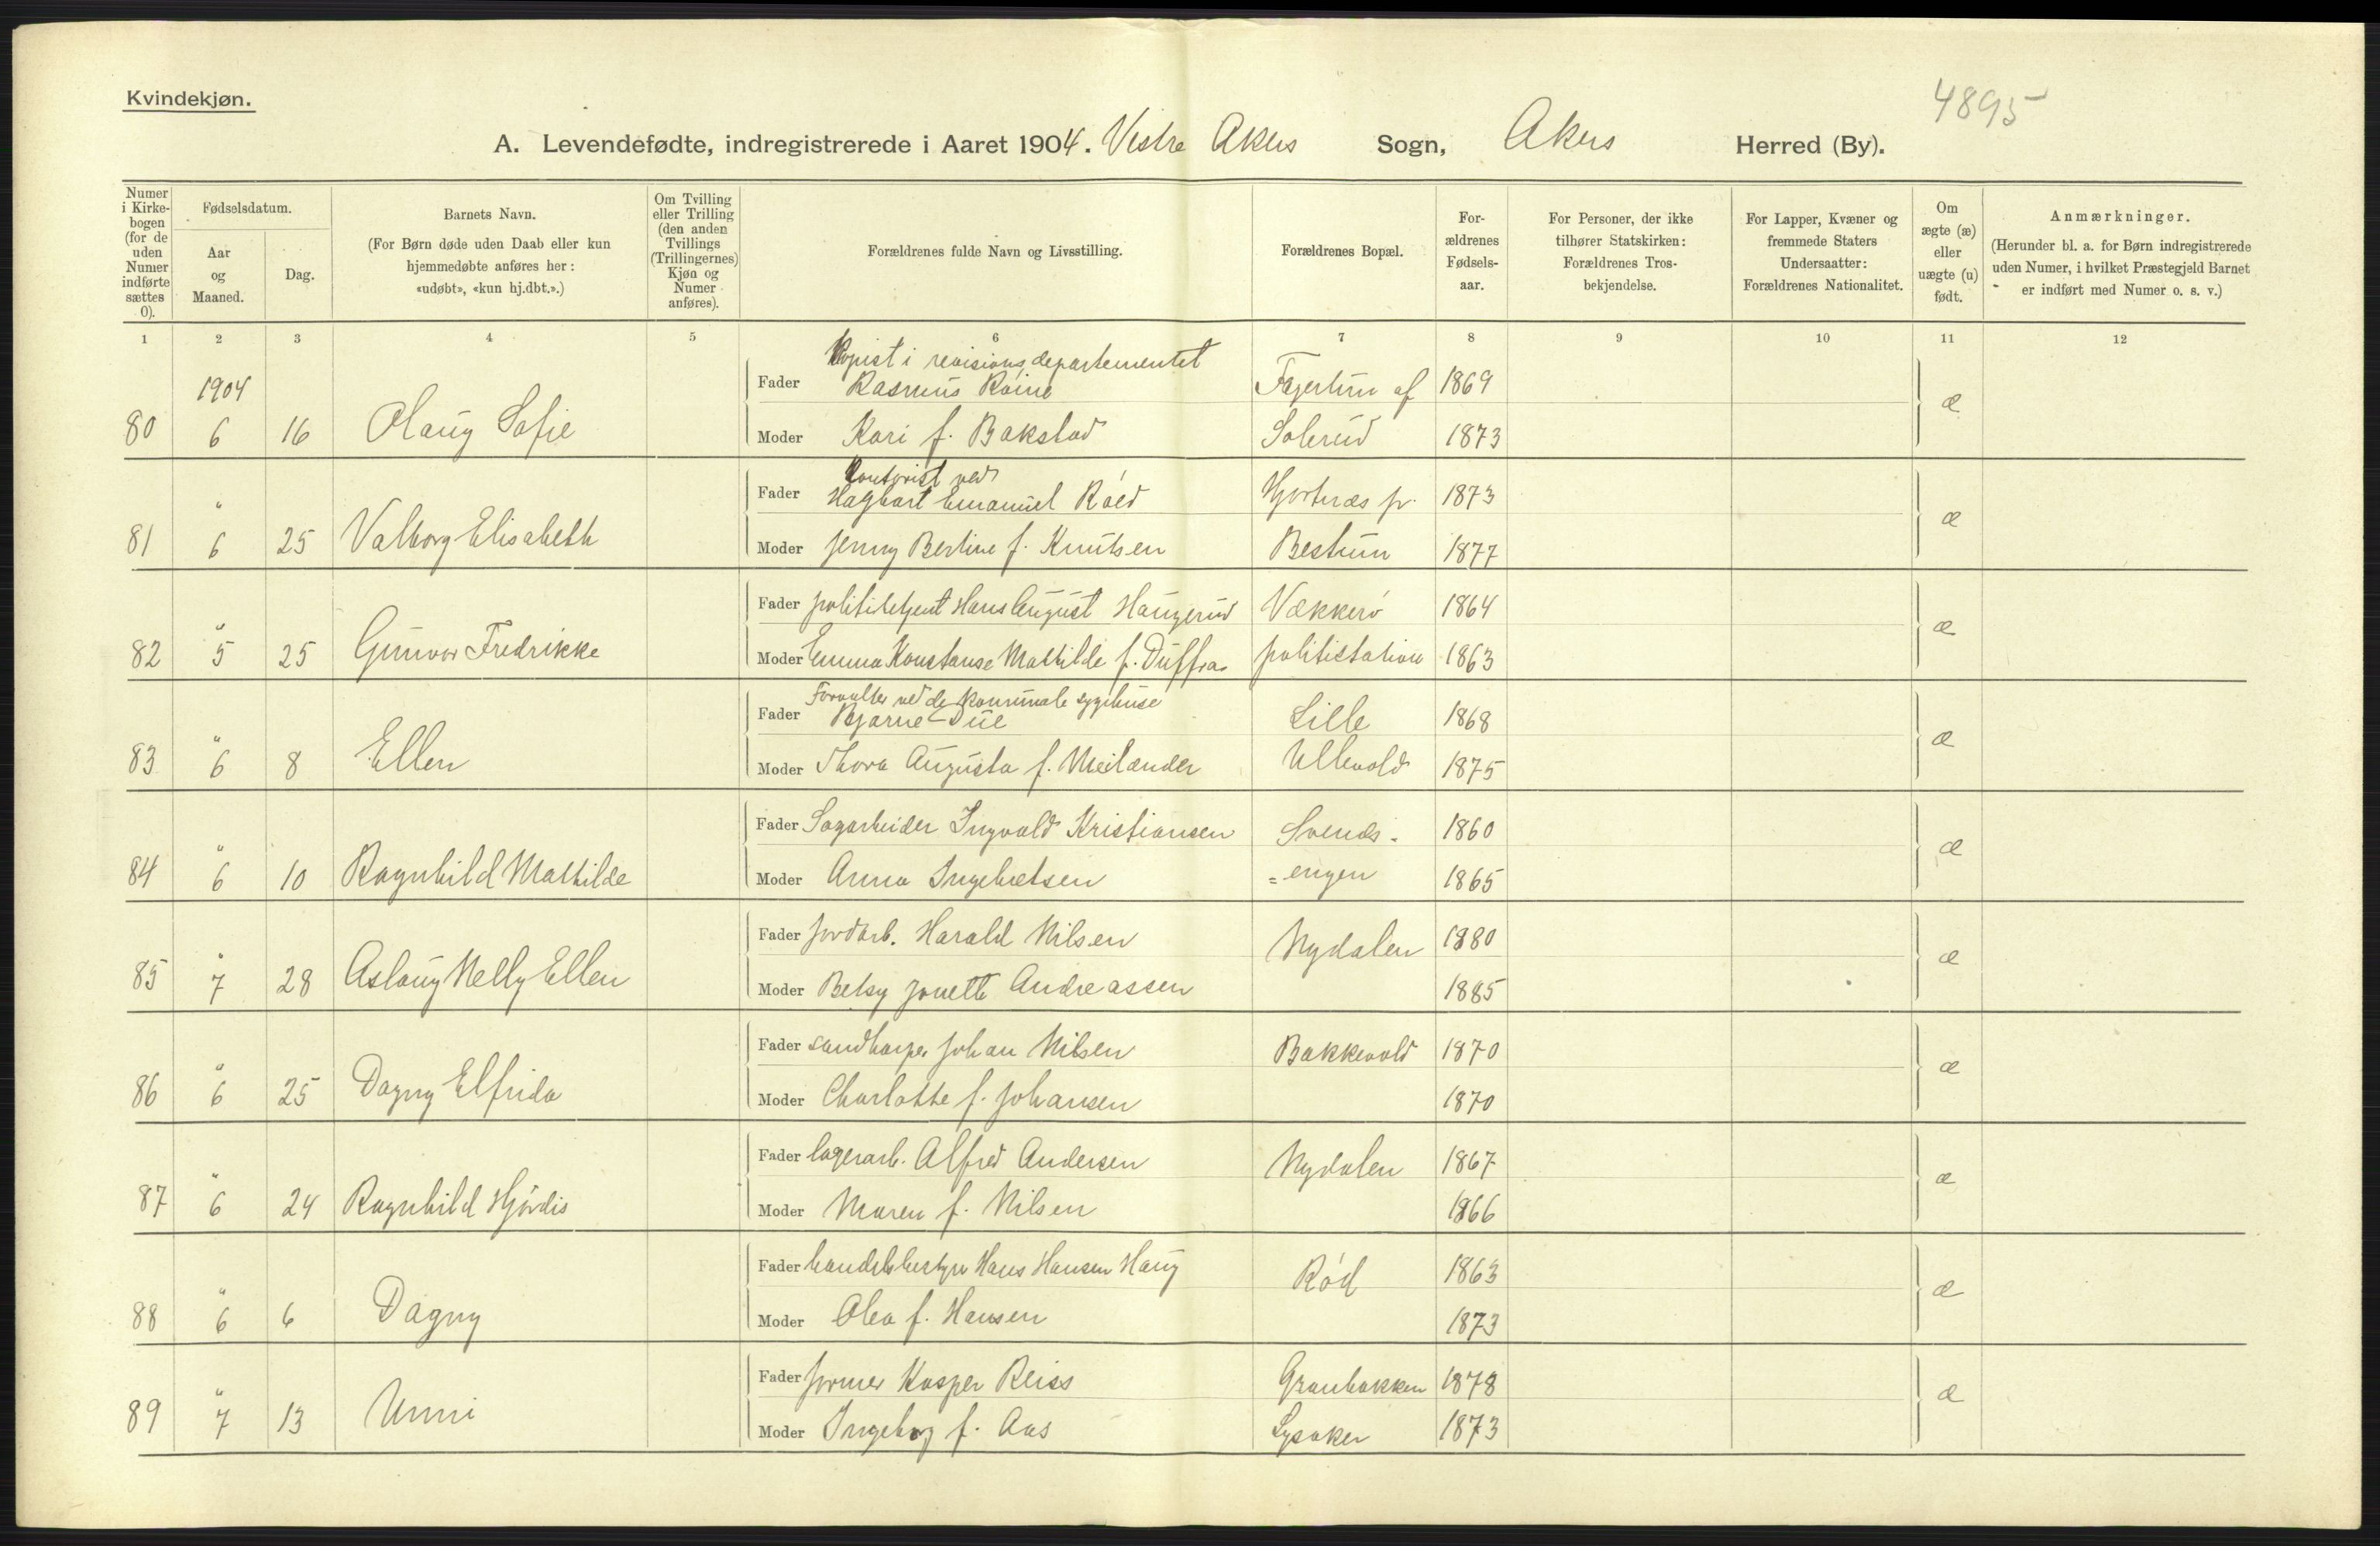 Kvindekjøn.
4895
A. Levendefødte, indregistrerede i Aaret 1904. Vestre Akers Sogn, Akers Herred (By).
Numer i Kirkebogen (for de uden Numer indførte sættes 0).
Fødselsdatum.
Aar og Maaned.
Dag.
Barnets Navn.
(For Børn døde uden Daab eller kun hjemmedøbte anføres her: «udøbt», «kun hj.dbt.».)
Om Tvilling eller Trilling (den anden Tvillings (Trillingernes) Kjøn og Numer anføres).
Forældrenes fulde Navn og Livsstilling.
Forældrenes Bopæl.
Forældrenes Fødselsaar.
For Personer, der ikke tilhører Statskirken: Forældrenes Trosbekjendelse.
For Lapper, Kvæner og fremmede Staters Undersaatter: Forældrenes Nationalitet.
Om ægte (æ) eller uægte (u) født.
Anmærkninger.
(Herunder bl. a. for Børn indregistrerede uden Numer, i hvilket Præstegjeld Barnet er indført med Numer o. s. v.)
1 2 3 4 5 6 7 8 9 10 11 12
Kopist i revisionsdepartementet
1904 Fader Rasmus Röine Fagertun af 1869
80 6 16 Olaug Sofie Moder Kari f. Bakstad Solerud 1873 æ
Kontorist ved
" Fader Hagbart Emanuel Röed Hjortnæs pr. 1873
81 6 25 Valborg Elisabeth Moder Jenny Bertine f. Knutsen Bestum 1877 æ
" Fader politibetjent Hans August Haugerud Vækkerö 1864
82 5 25 Gunvor Fredrikke Moder Emma Konstanse Mathilde f. politistation 1863 æ
Forvalter ved de kommunale sygehuse
" Fader Bjarne Due Lille 1868
83 6 8 Ellen Moder Thora Augusta f. Meilænder Ullevold 1875 æ
" Fader Sagarbeider Ingvald Kristiansen Svends- 1860
84 6 10 Ragnhild Mathilde Moder Anna Ingebretsen =engen 1865 æ
" Fader jordarb. Harald Nilsen Nydalen 1880
85 7 28 Aslaug Nelly Ellen Moder Betsy Jonette Andreassen 1885 æ
" Fader sandharper Johan Nilsen Bakkevold 1870
86 6 25 Dagny Elfrida Moder Charlotte f. Johansen 1870 æ
" Fader lagerarb. Alfred Andersen Nydalen 1867
87 6 24 Ragnhild Hjördis Moder Maren f. Nilsen 1866 æ
" Fader handelsbestyr Hans Hansen Haug Röd 1863
88 6 6 Dagny Moder Olea f. Hansen 1873 æ
" Fader former Kasper Reiss Granbakken 1878
89 7 13 Unni Moder Ingeborg f. Aas Lysaker 1873 æ